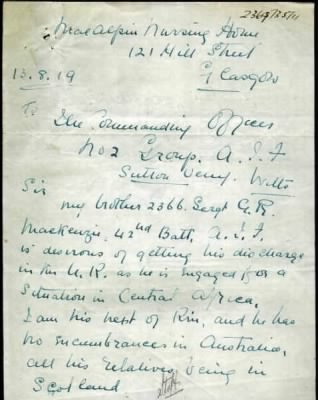 MacAlpin Nursing Home
121 Hill Street
Glasgow
13.8.19
To
The Commanding Officer
No 2 Group. A.I.F
Sutton Veny. Wilts
Sir
my brother 2366. Sergt G.R.
MacKenzie, 42nd Batt, A.I.F.
is desirous of getting his discharge
in the U.K. as he is engaged for a
Situation in Central Africa,
I am his next of Kin, and he has
no encumbrances in Australia,
all his relatives being in
Scotland